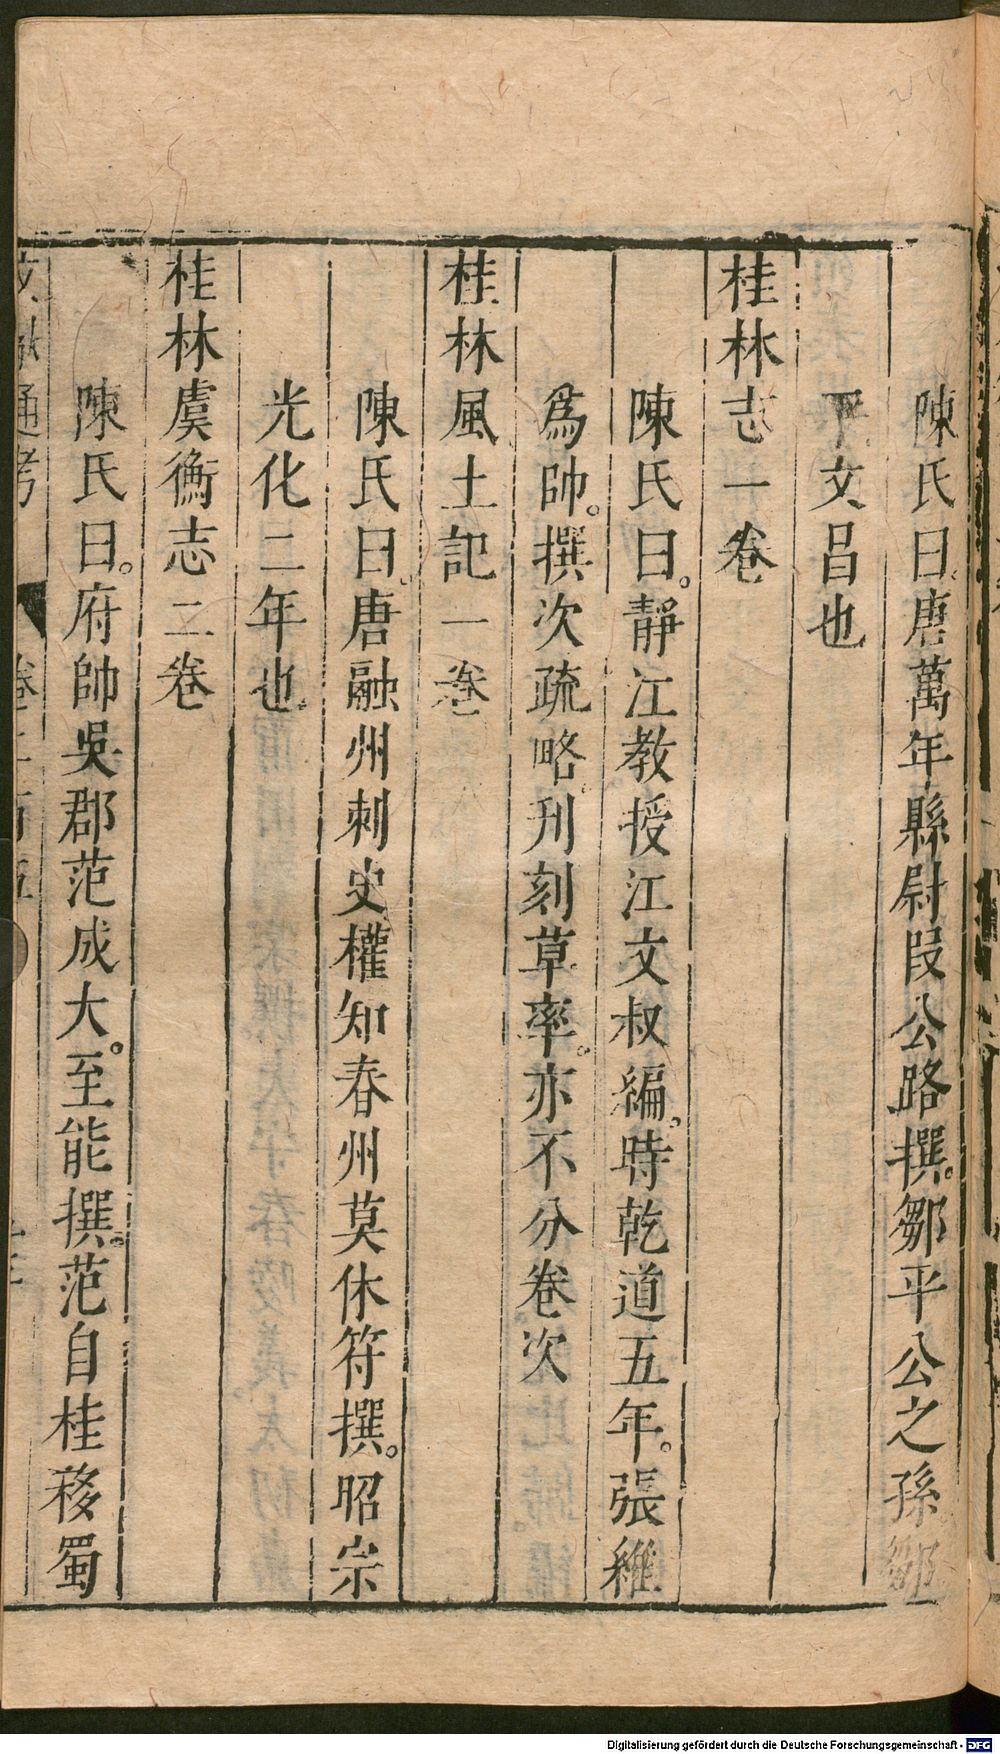 陳氏曰。唐萬年縣尉段公路撰。鄒平公之孫鄒
平文昌也
桂林志一卷
陳氏曰。靜江教授江文叔編。時乾道五年。張維
爲帥。撰次疏略刋刻草率。亦不分卷次
桂林風土記一卷
陳氏曰。唐融州刺史權知春州莫休符撰。昭宗
光化二年也
桂林虞衡志二卷
陳氏曰。府帥吳郡范成大。至能撰。范自桂移蜀
通考 卷二百五
Digitalisierung gefördert durch die Deutsche Forschungsgemeinschaft - DFG